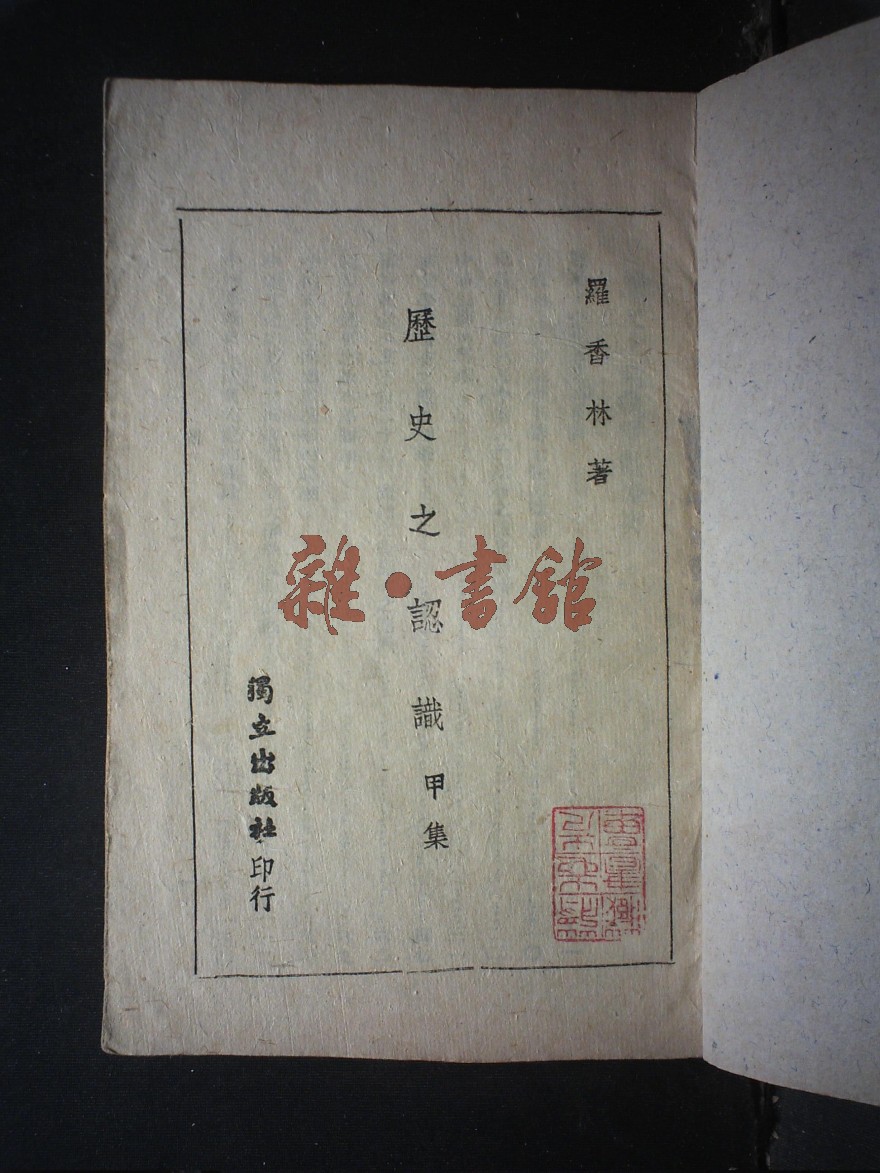 羅香林著
歷史之認識甲集
獨立出版社印行
雜·書館